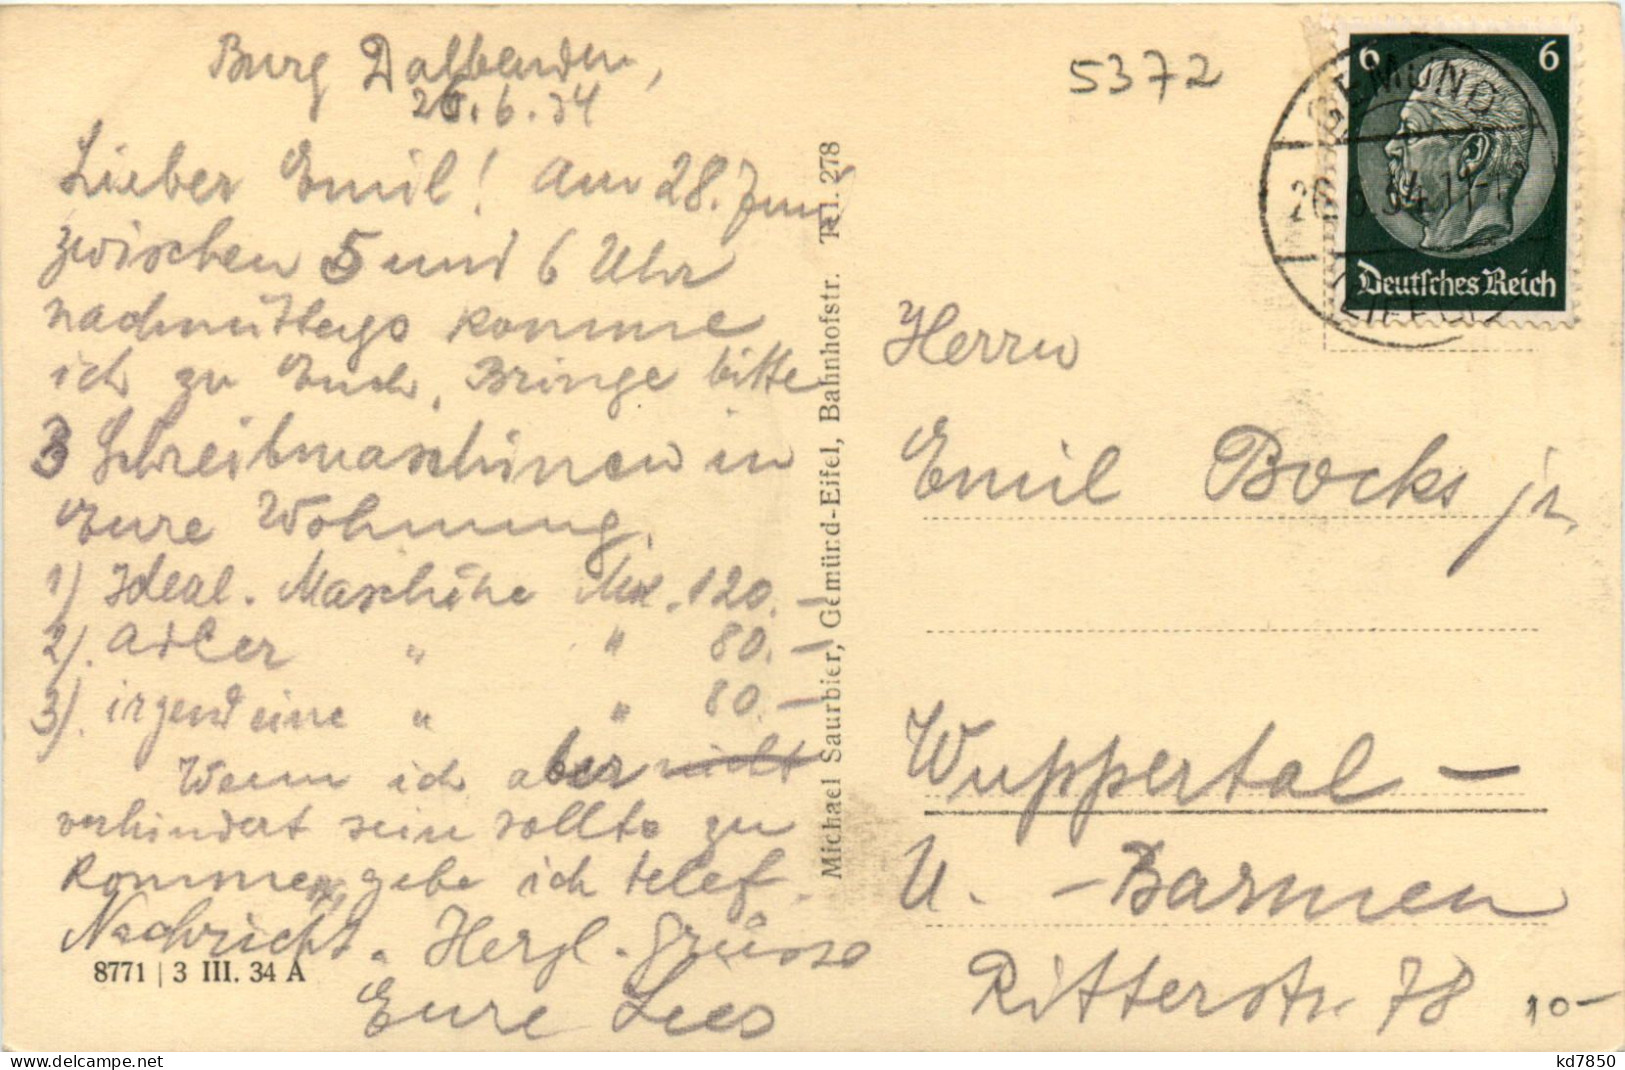 Burg Dalbenden,
26.6.34
Lieber Emil! Am 28. Juni
zwischen 5 und 6 Uhr
nachmittags komme
ich zu Euch. Bringe bitte
3 Schreibmaschinen in
Eure Wohnung.
1) Ideal. Maschine Mk. 120.-
2). Adler " " 80.-
3). irgend eine " " 80.-
Wenn ich aber nicht
verhindert sein sollte zu
kommen, gebe ich telef.
Nachricht. Herzl. Grüsse
Eure Lees
8771 | 3 III. 34 A
Michael Saurbier, Gemünd-Eifel, Bahnhofstr. Tel. 278
5372
6 6
Deutsches Reich
GEMÜND
(EIFEL)
Herrn
Emil Bocks jr.
Wuppertal –
U. – Barmen
Ritterstr. 78
10-
delcampe.net
kd7850